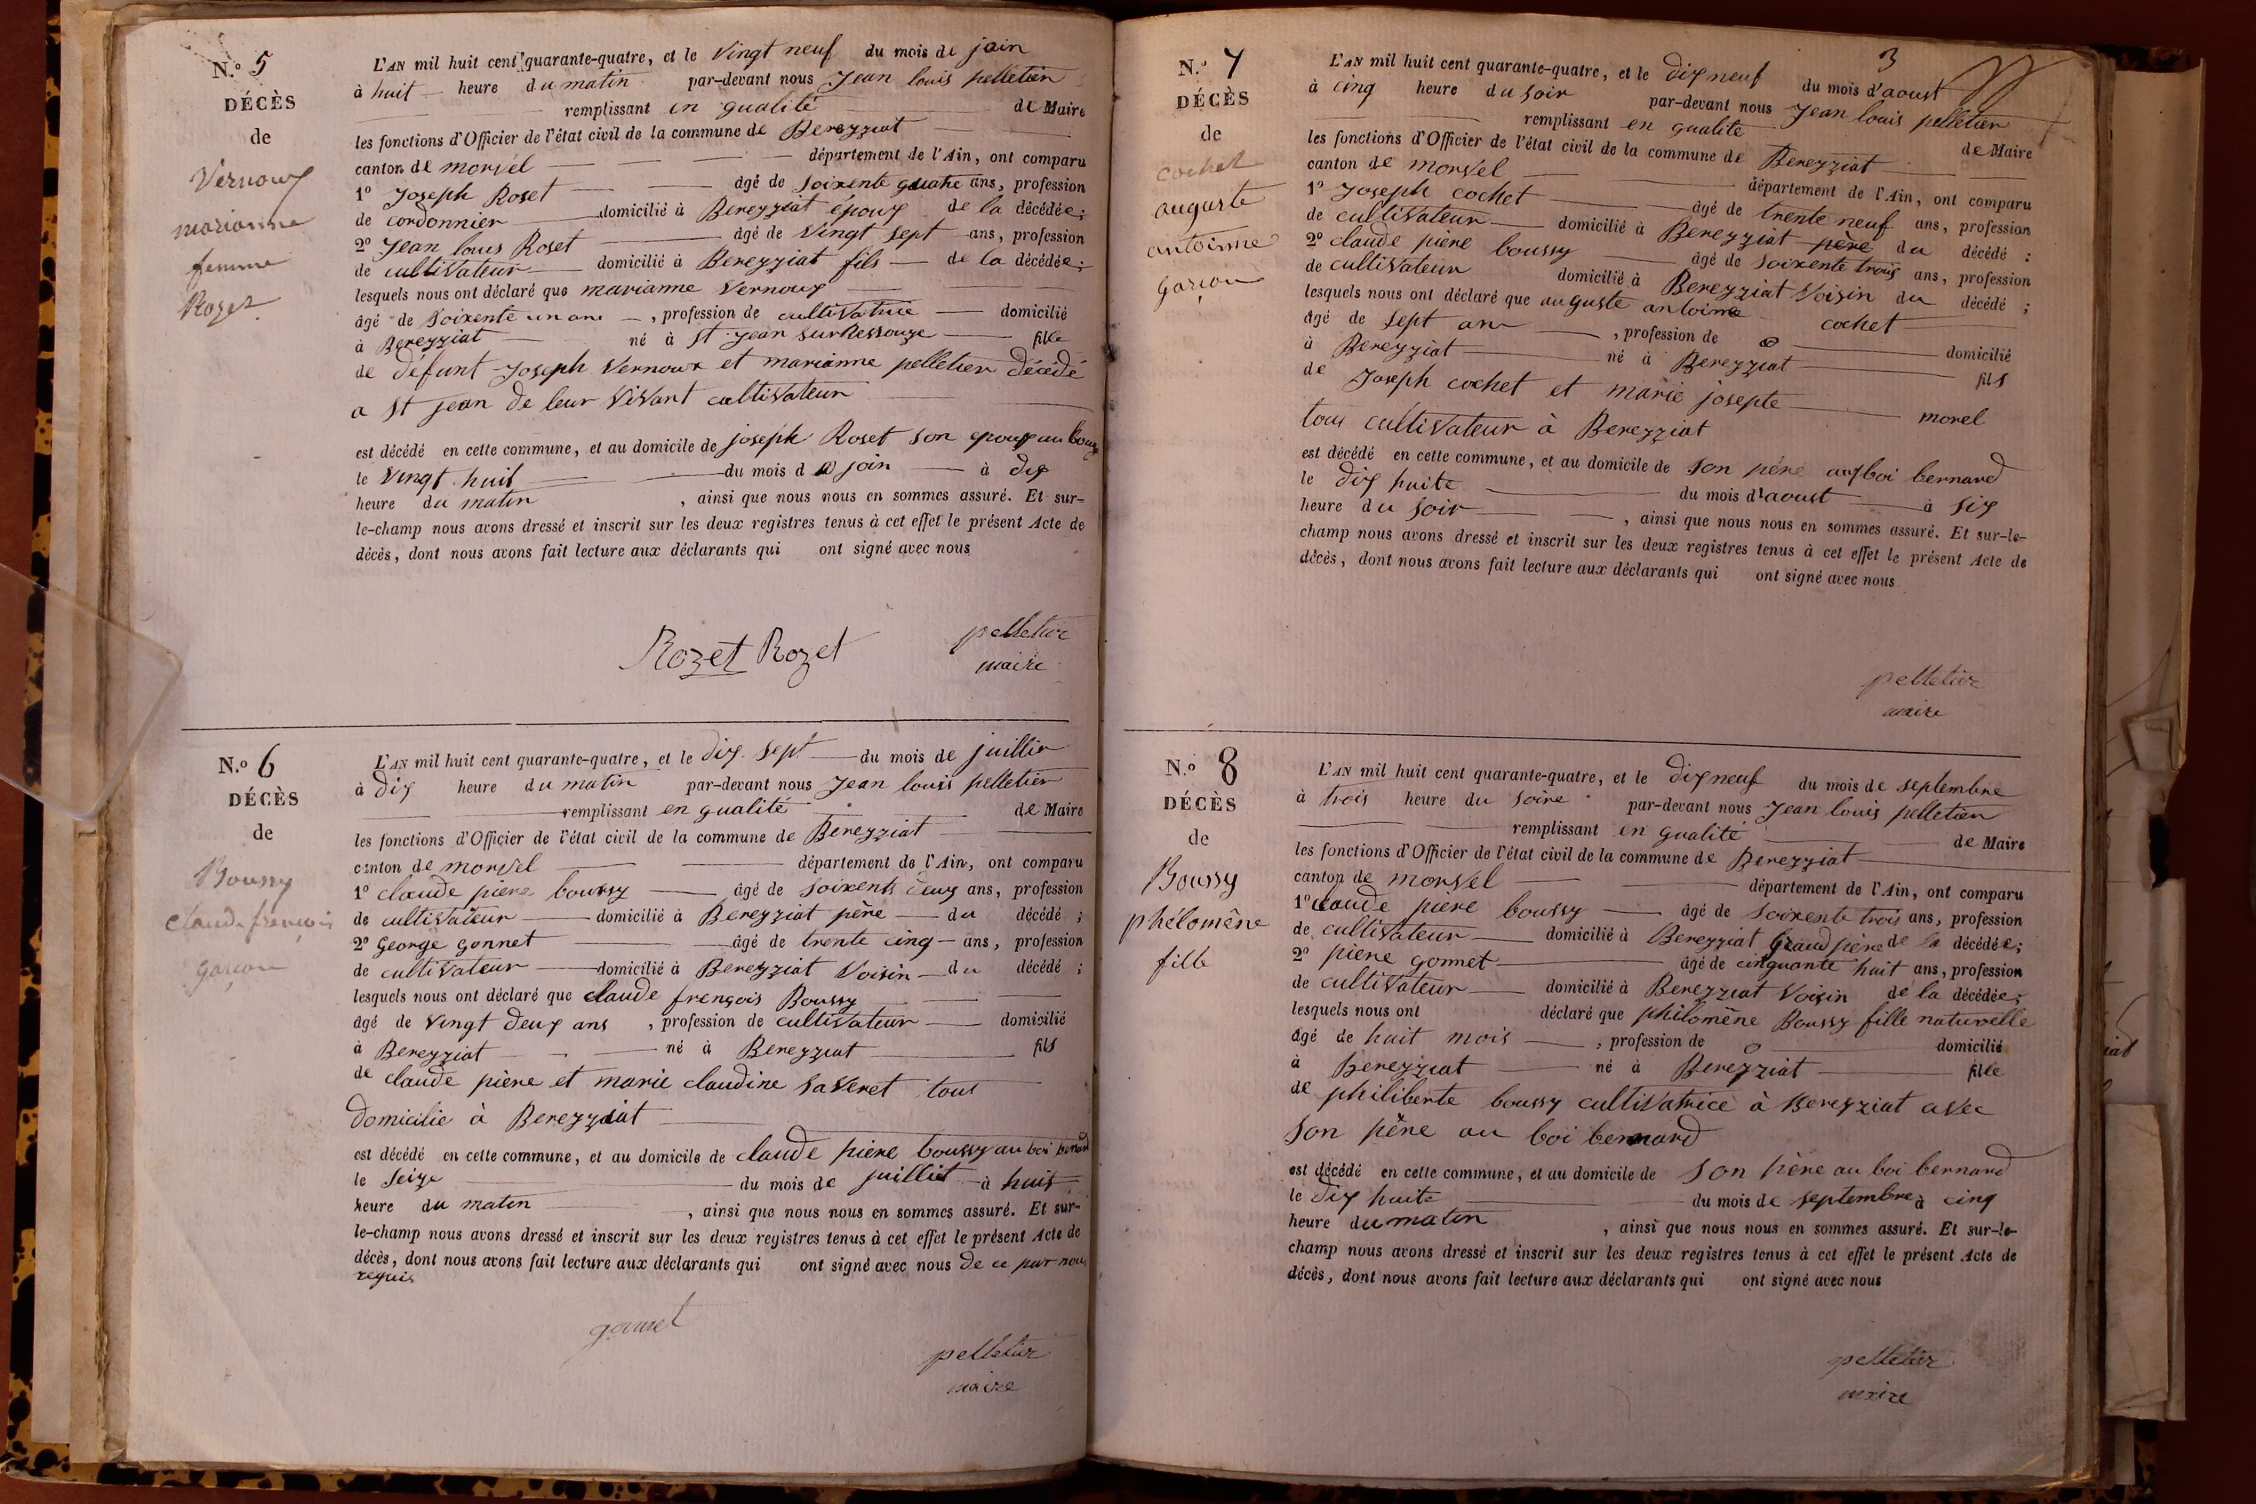 N.º 5
DÉCÈS
de
Vernoux
marianne
femme
Rozet
L'AN mil huit cent quarante-quatre, et le vingt neuf du mois de join
à huit heure du matin par-devant nous Jean louis pelletier
remplissant en qualité de Maire
les fonctions d'Officier de l'état civil de la commune de Bereyziat
canton de morvel département de l'Ain, ont comparu
1º Joseph Roset âgé de soixente quatre ans, profession
de cordonnier domicilié à Bereyziat époux de la décédée;
2º Jean louis Roset âgé de vingt sept ans, profession
de cultivateur domicilié à Bereyziat fils de la décédée;
lesquels nous ont déclaré que marianne vernoux
âgé de soixente un ans, profession de cultivatrice domicilié
à Bereyziat né à st jean sur Ressouze fille
de defunt Joseph vernoux et marianne pelletier décédé
a st jean de leur vivant cultivateur
est décédé en cette commune, et au domicile de joseph Roset son epoux au bourg
le vingt huit du mois de join à dix
heure du matin, ainsi que nous nous en sommes assuré. Et sur-
le-champ nous avons dressé et inscrit sur les deux registres tenus à cet effet le présent Acte de
décès, dont nous avons fait lecture aux déclarants qui ont signé avec nous
Rozet Rozet pelletier
maire
N.º 6
DÉCÈS
de
Boussy
claude françois
garçon
L'AN mil huit cent quarante-quatre, et le dix sept du mois de juillier
à dix heure du matin par-devant nous Jean louis pelletier
remplissant en qualité de Maire
les fonctions d'Officier de l'état civil de la commune de Bereyziat
canton de morvel département de l'Ain, ont comparu
1º claude piere boussy âgé de soixente deux ans, profession
de cultivateur domicilié à Bereyziat père du décédé;
2º George gonnet âgé de trente cinq ans, profession
de cultivateur domicilié à Bereyziat voisin du décédé;
lesquels nous ont déclaré que claude françois Boussy
âgé de vingt deux ans, profession de cultivateur domicilié
à Bereyziat né à Bereyziat fils
de claude piere et marie claudine saveret tous
domicilie à Bereyziat
est décédé en cette commune, et au domicile de claude piere boussy au boi bernard
le seize du mois de juillet à huit
heure du maten, ainsi que nous nous en sommes assuré. Et sur-
le-champ nous avons dressé et inscrit sur les deux registres tenus à cet effet le présent Acte de
décès, dont nous avons fait lecture aux déclarants qui ont signé avec nous de ce par nous
requis
gonnet
pelletier
maire
3
N.º 7
DÉCÈS
de
cochet
auguste
antoinne
garçon
L'AN mil huit cent quarante-quatre, et le dix neuf du mois d'aoust
à cinq heure du soir par-devant nous Jean louis pelletier
remplissant en qualité de Maire
les fonctions d'Officier de l'état civil de la commune de Bereyziat
canton de morvel département de l'Ain, ont comparu
1º Joseph cochet âgé de trente neuf ans, profession
de cultivateur domicilié à Bereyziat père du décédé;
2º claude piere boussy âgé de soixente trois ans, profession
de cultivateur domicilié à Bereyziat voisin du décédé;
lesquels nous ont déclaré que auguste antoinne cochet
âgé de sept ans, profession de domicilié
à Bereyziat né à Bereyziat fils
de Joseph cochet et marie josepte morel
tous cultivateur à Bereyziat
est décédé en cette commune, et au domicile de son père aux boi bernard
le dix huite du mois d'aoust à six
heure du soir, ainsi que nous nous en sommes assuré. Et sur-le-
champ nous avons dressé et inscrit sur les deux registres tenus à cet effet le présent Acte de
décès, dont nous avons fait lecture aux déclarants qui ont signé avec nous
pelletier
maire
N.º 8
DÉCÈS
de
Boussy
phélomêne
fille
L'AN mil huit cent quarante-quatre, et le dix neuf du mois de septembre
à trois heure du soire par-devant nous Jean louis pelletier
remplissant en qualité de Maire
les fonctions d'Officier de l'état civil de la commune de Bereyziat
canton de morvel département de l'Ain, ont comparu
1º claude piere boussy âgé de soixente trois ans, profession
de cultivateur domicilié à Bereyziat Grand père de la décédée;
2º piere gonnet âgé de cinquante huit ans, profession
de cultivateur domicilié à Bereyziat voisin de la décédée;
lesquels nous ont déclaré que philomêne Boussy fille naturelle
âgé de huit mois, profession de domicilié
à Bereyziat né à Bereyziat fille
de philiberte boussy cultivatrice à Bereyziat avec
son père au boi bernard
est décédé en cette commune, et au domicile de son père au boi bernard
le dix huite du mois de septembre à cinq
heure du maten, ainsi que nous nous en sommes assuré. Et sur-le-
champ nous avons dressé et inscrit sur les deux registres tenus à cet effet le présent Acte de
décès, dont nous avons fait lecture aux déclarants qui ont signé avec nous
pelletier
maire